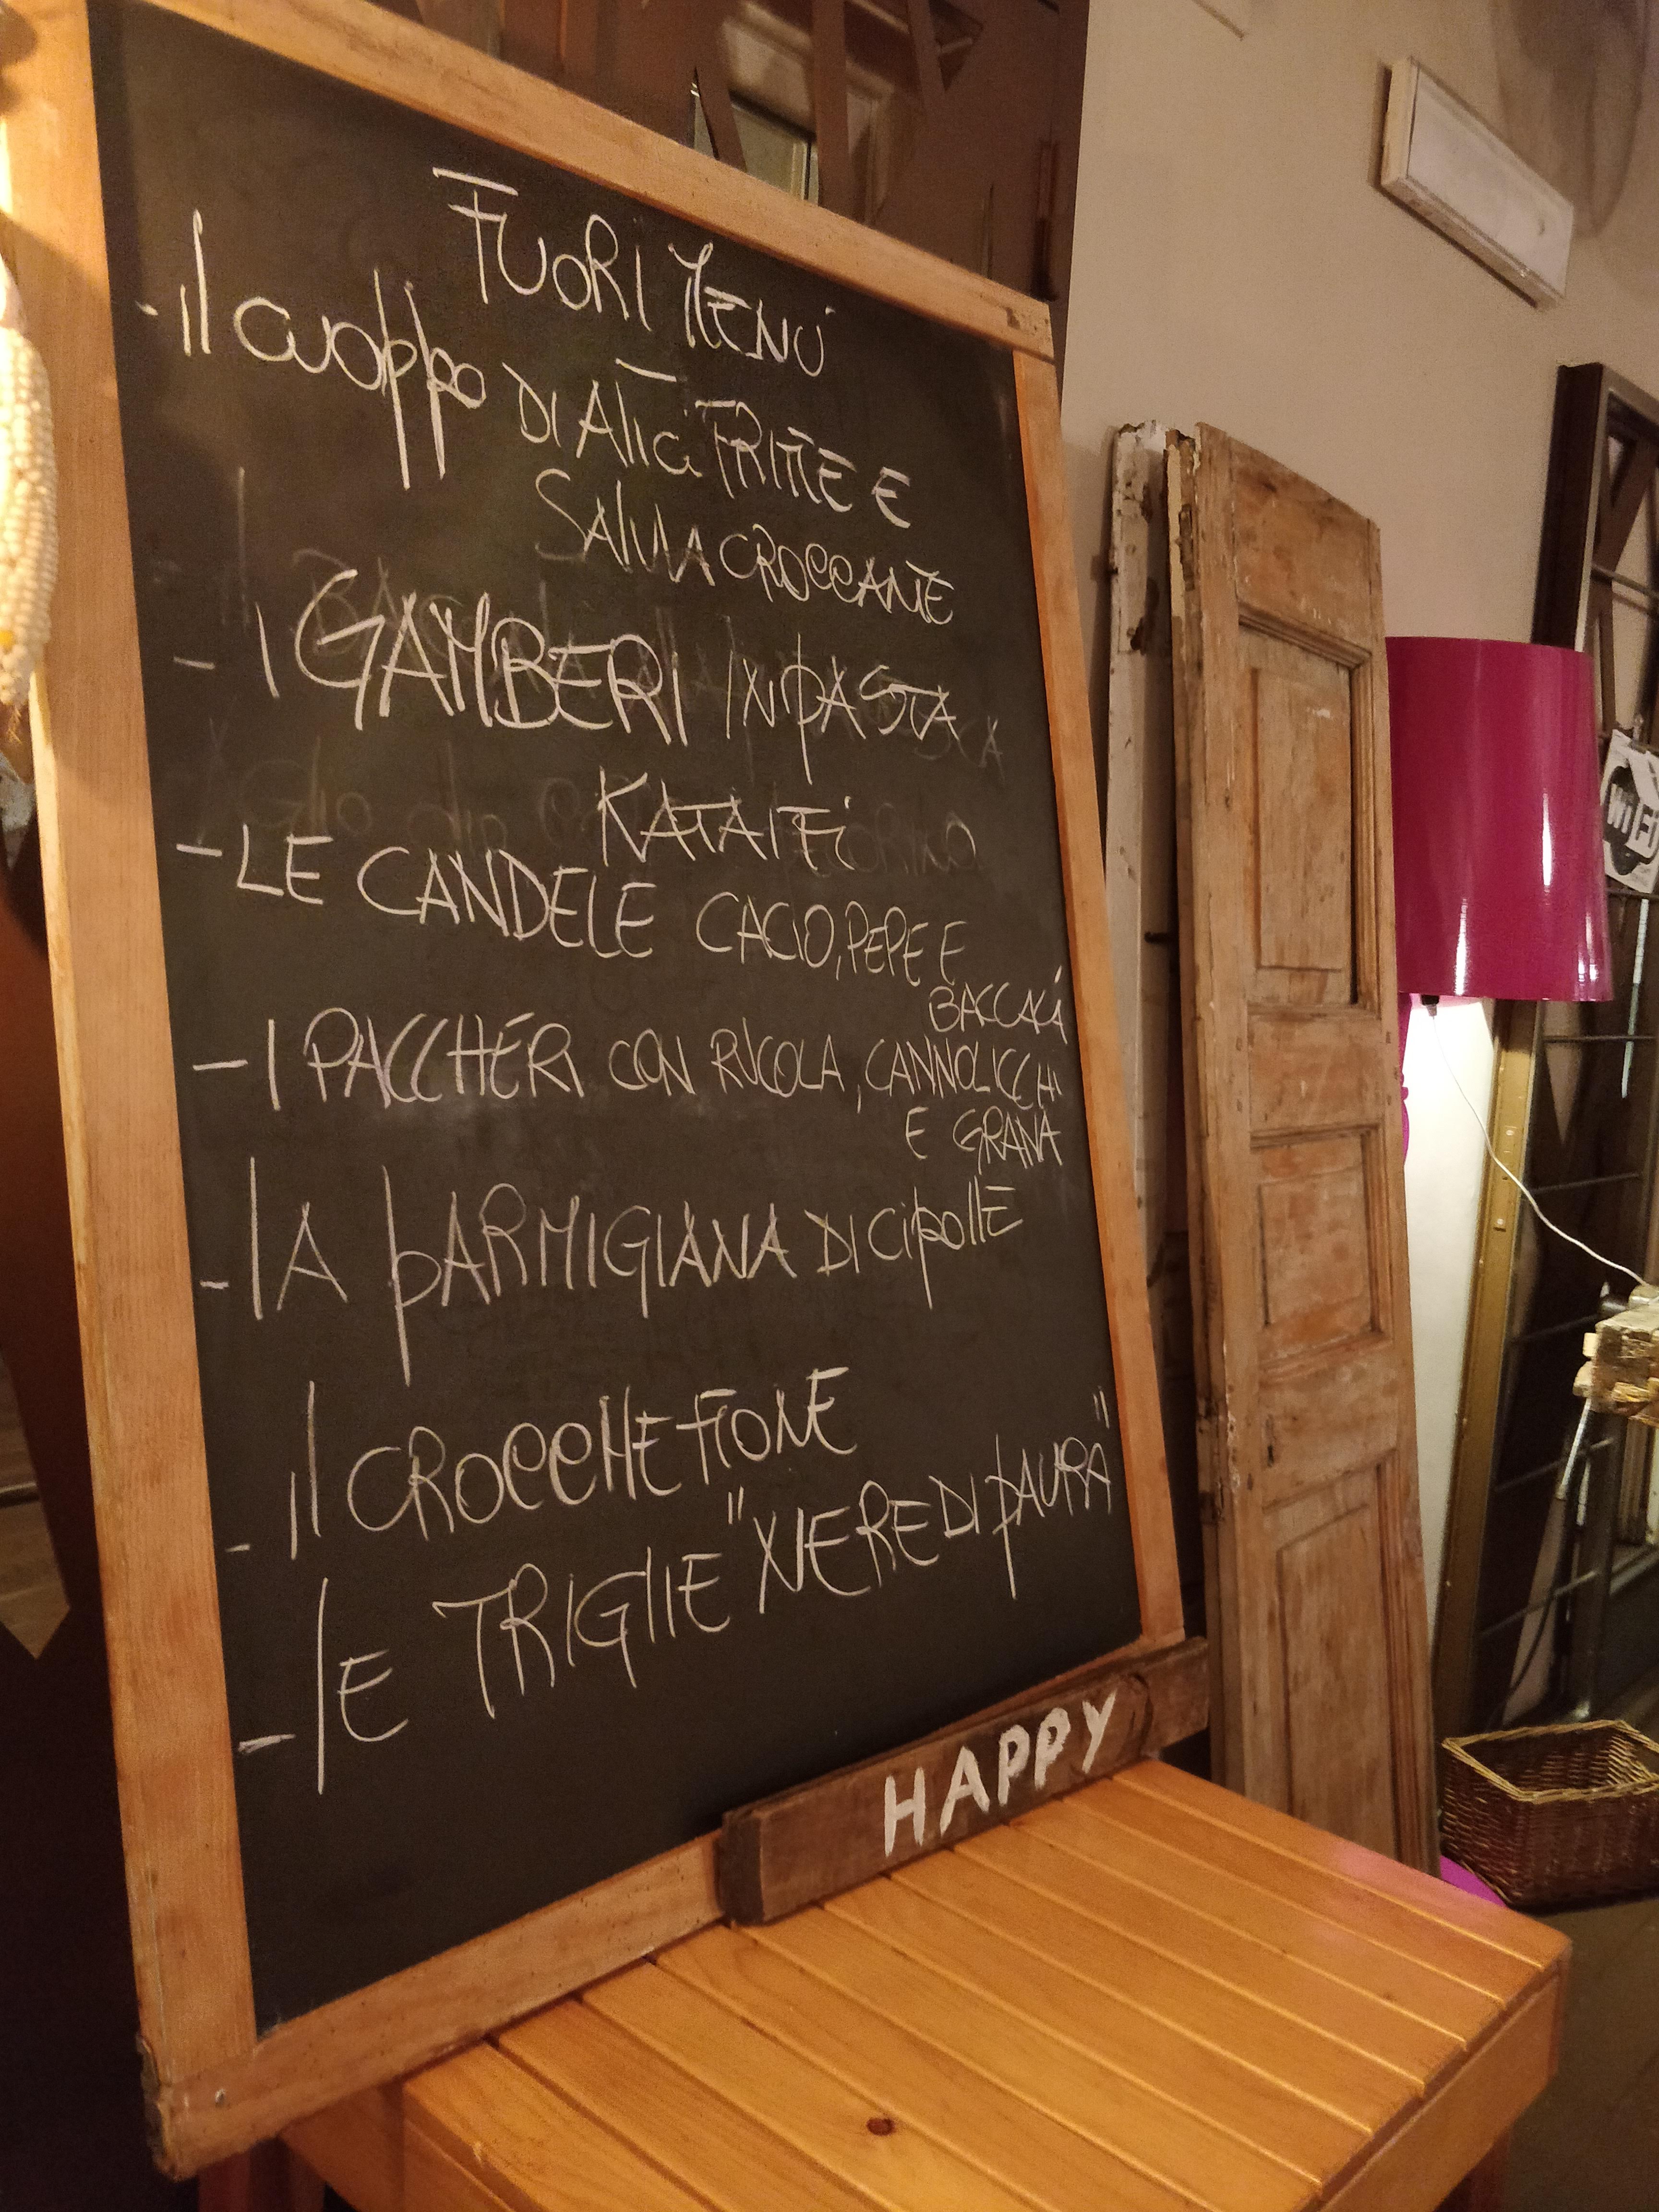 FUORI MENÚ
- il cuoppo DI Alici FRITTE E
SAlVIA CROCCANTE
- I GAMBERI IN PASTA
KATAIFI
- LE CANDELE CACIO, PEPE E
BACCALÀ
- I PACCHERI CON RUCOLA, CANNOLICCHI
E GRANA
- lA pARMIGIANA DI CipollE
- il CROCCHETTONE
- lE TRIGlIE "NERE DI pAURA"
HAPPY
WiFi